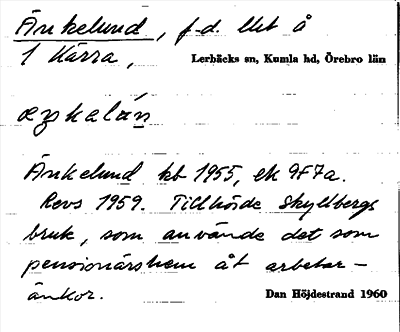 Änkelund, f.d. lht å
1 Kärra,
Lerbäcks sn, Kumla hd, Örebro län
æŋkalún
Änkelund kb 1955, ek 9F7a.
Revs 1959. Tillhörde Skyllbergs
bruk, som använde det som
pensionärshem åt arbetar-
änkor.
Dan Höjdestrand 1960